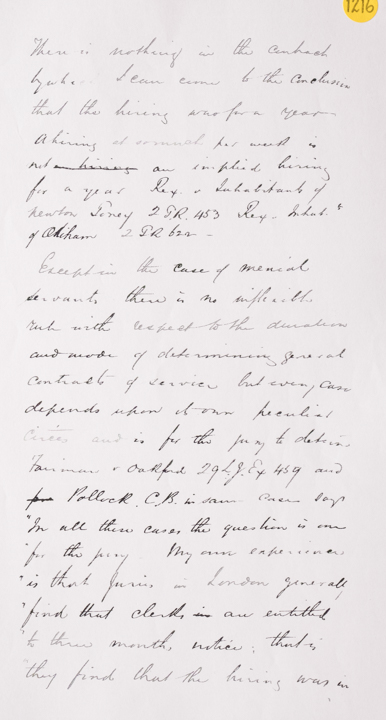 1216
There is nothing in the contract
by wh. I can come to the conclusion
that the hiring was for a year
A hiring at so much per week is
not a hiring an implied hiring
for a year Rex. v Inhabitants of
Newton Toney 2 T.R. 453 Rex. Inhab.ts
of Odiham 2 T.R. 622 -
Except in the case of menial
servants there is no inflexible
rule with respect to the duration
and mode of determining general
contracts of service but every case
depends upon its own peculiar
circes and is for the jury to determ
Fairman v Oakford 29 L.J. Ex 459 and
per Pollock. C.B. in same case says
"In all these cases the question is one
"for the jury. My own experience
"is that Juries in London generally
"find that clerks in are entitled
"to three months notice; that is
"they find that the hiring was in